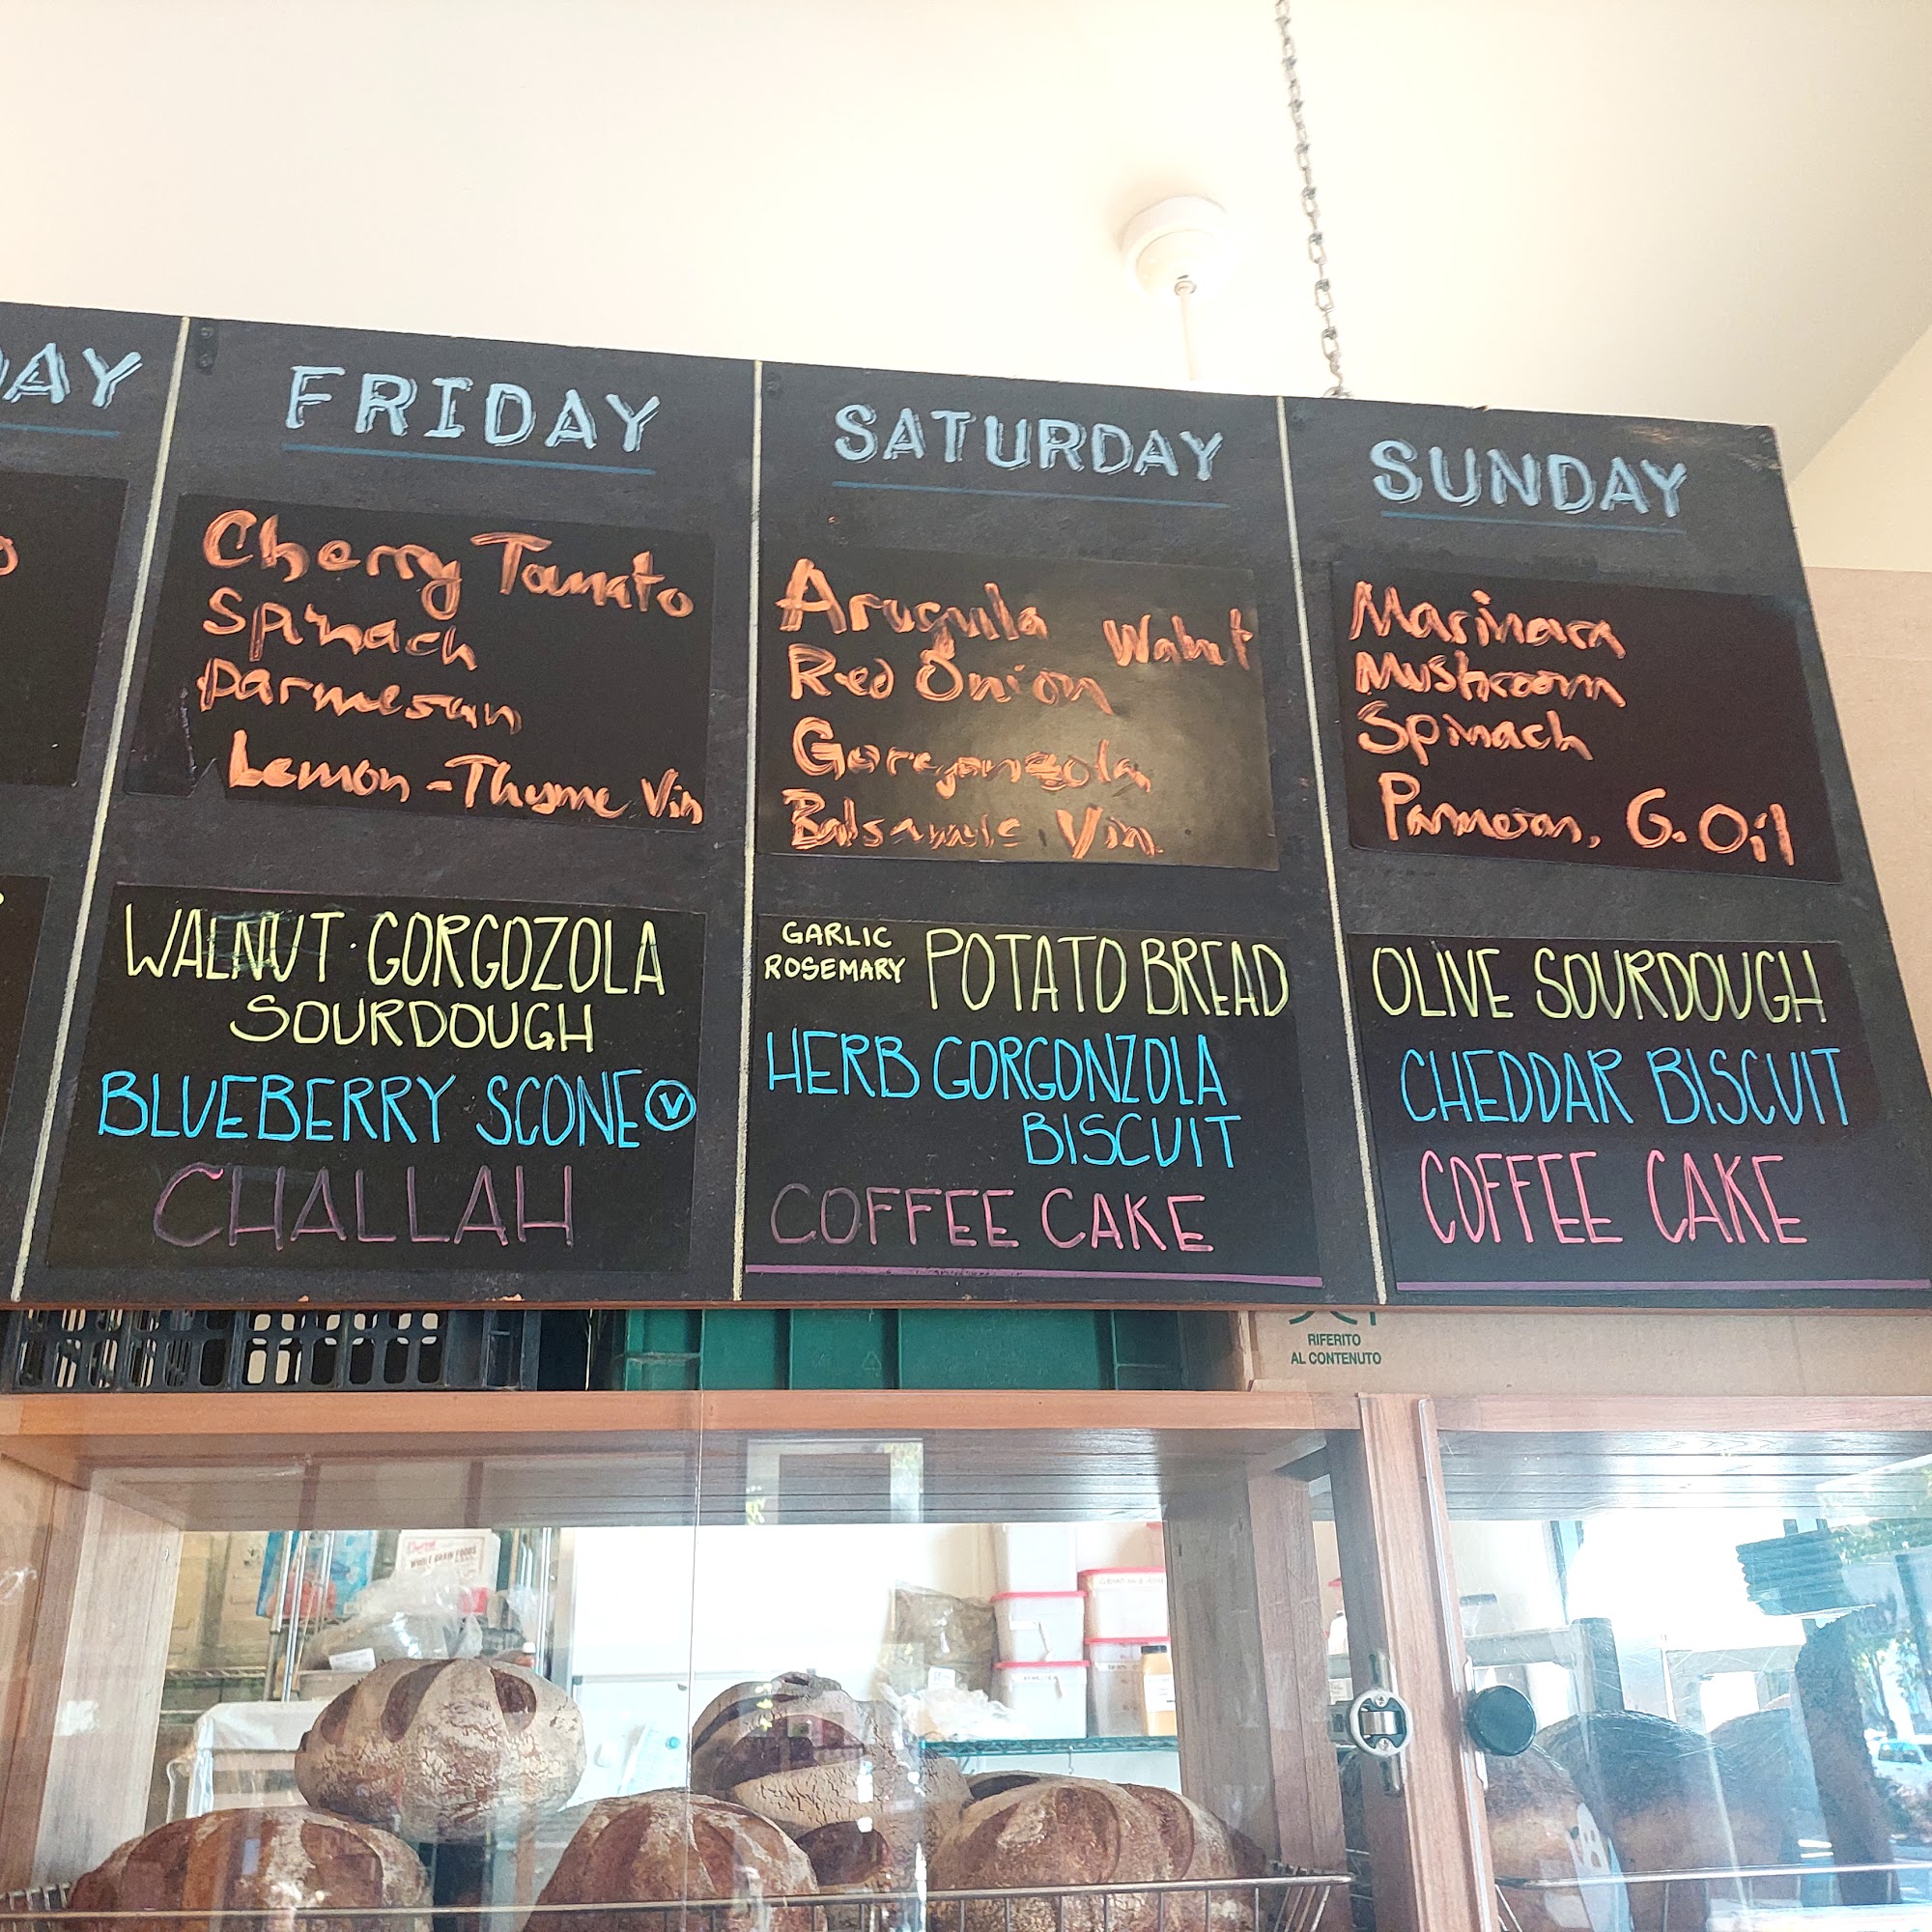 DAY
FRIDAY
Cherry Tomato
Spinach
Parmesan
Lemon-Thyme Vin
WALNUT·GORGOZOLA
SOURDOUGH
BLUEBERRY SCONE Ⓥ
CHALLAH
SATURDAY
Arugula Walnut
Red Onion
Gorgonzola
Balsamic Vin.
GARLIC
ROSEMARY POTATO BREAD
HERB GORGONZOLA
BISCUIT
COFFEE CAKE
SUNDAY
Marinara
Mushroom
Spinach
Parmesan, G. Oil
OLIVE SOURDOUGH
CHEDDAR BISCUIT
COFFEE CAKE
RIFERITO
AL CONTENUTO
WHOLE GRAIN FOODS